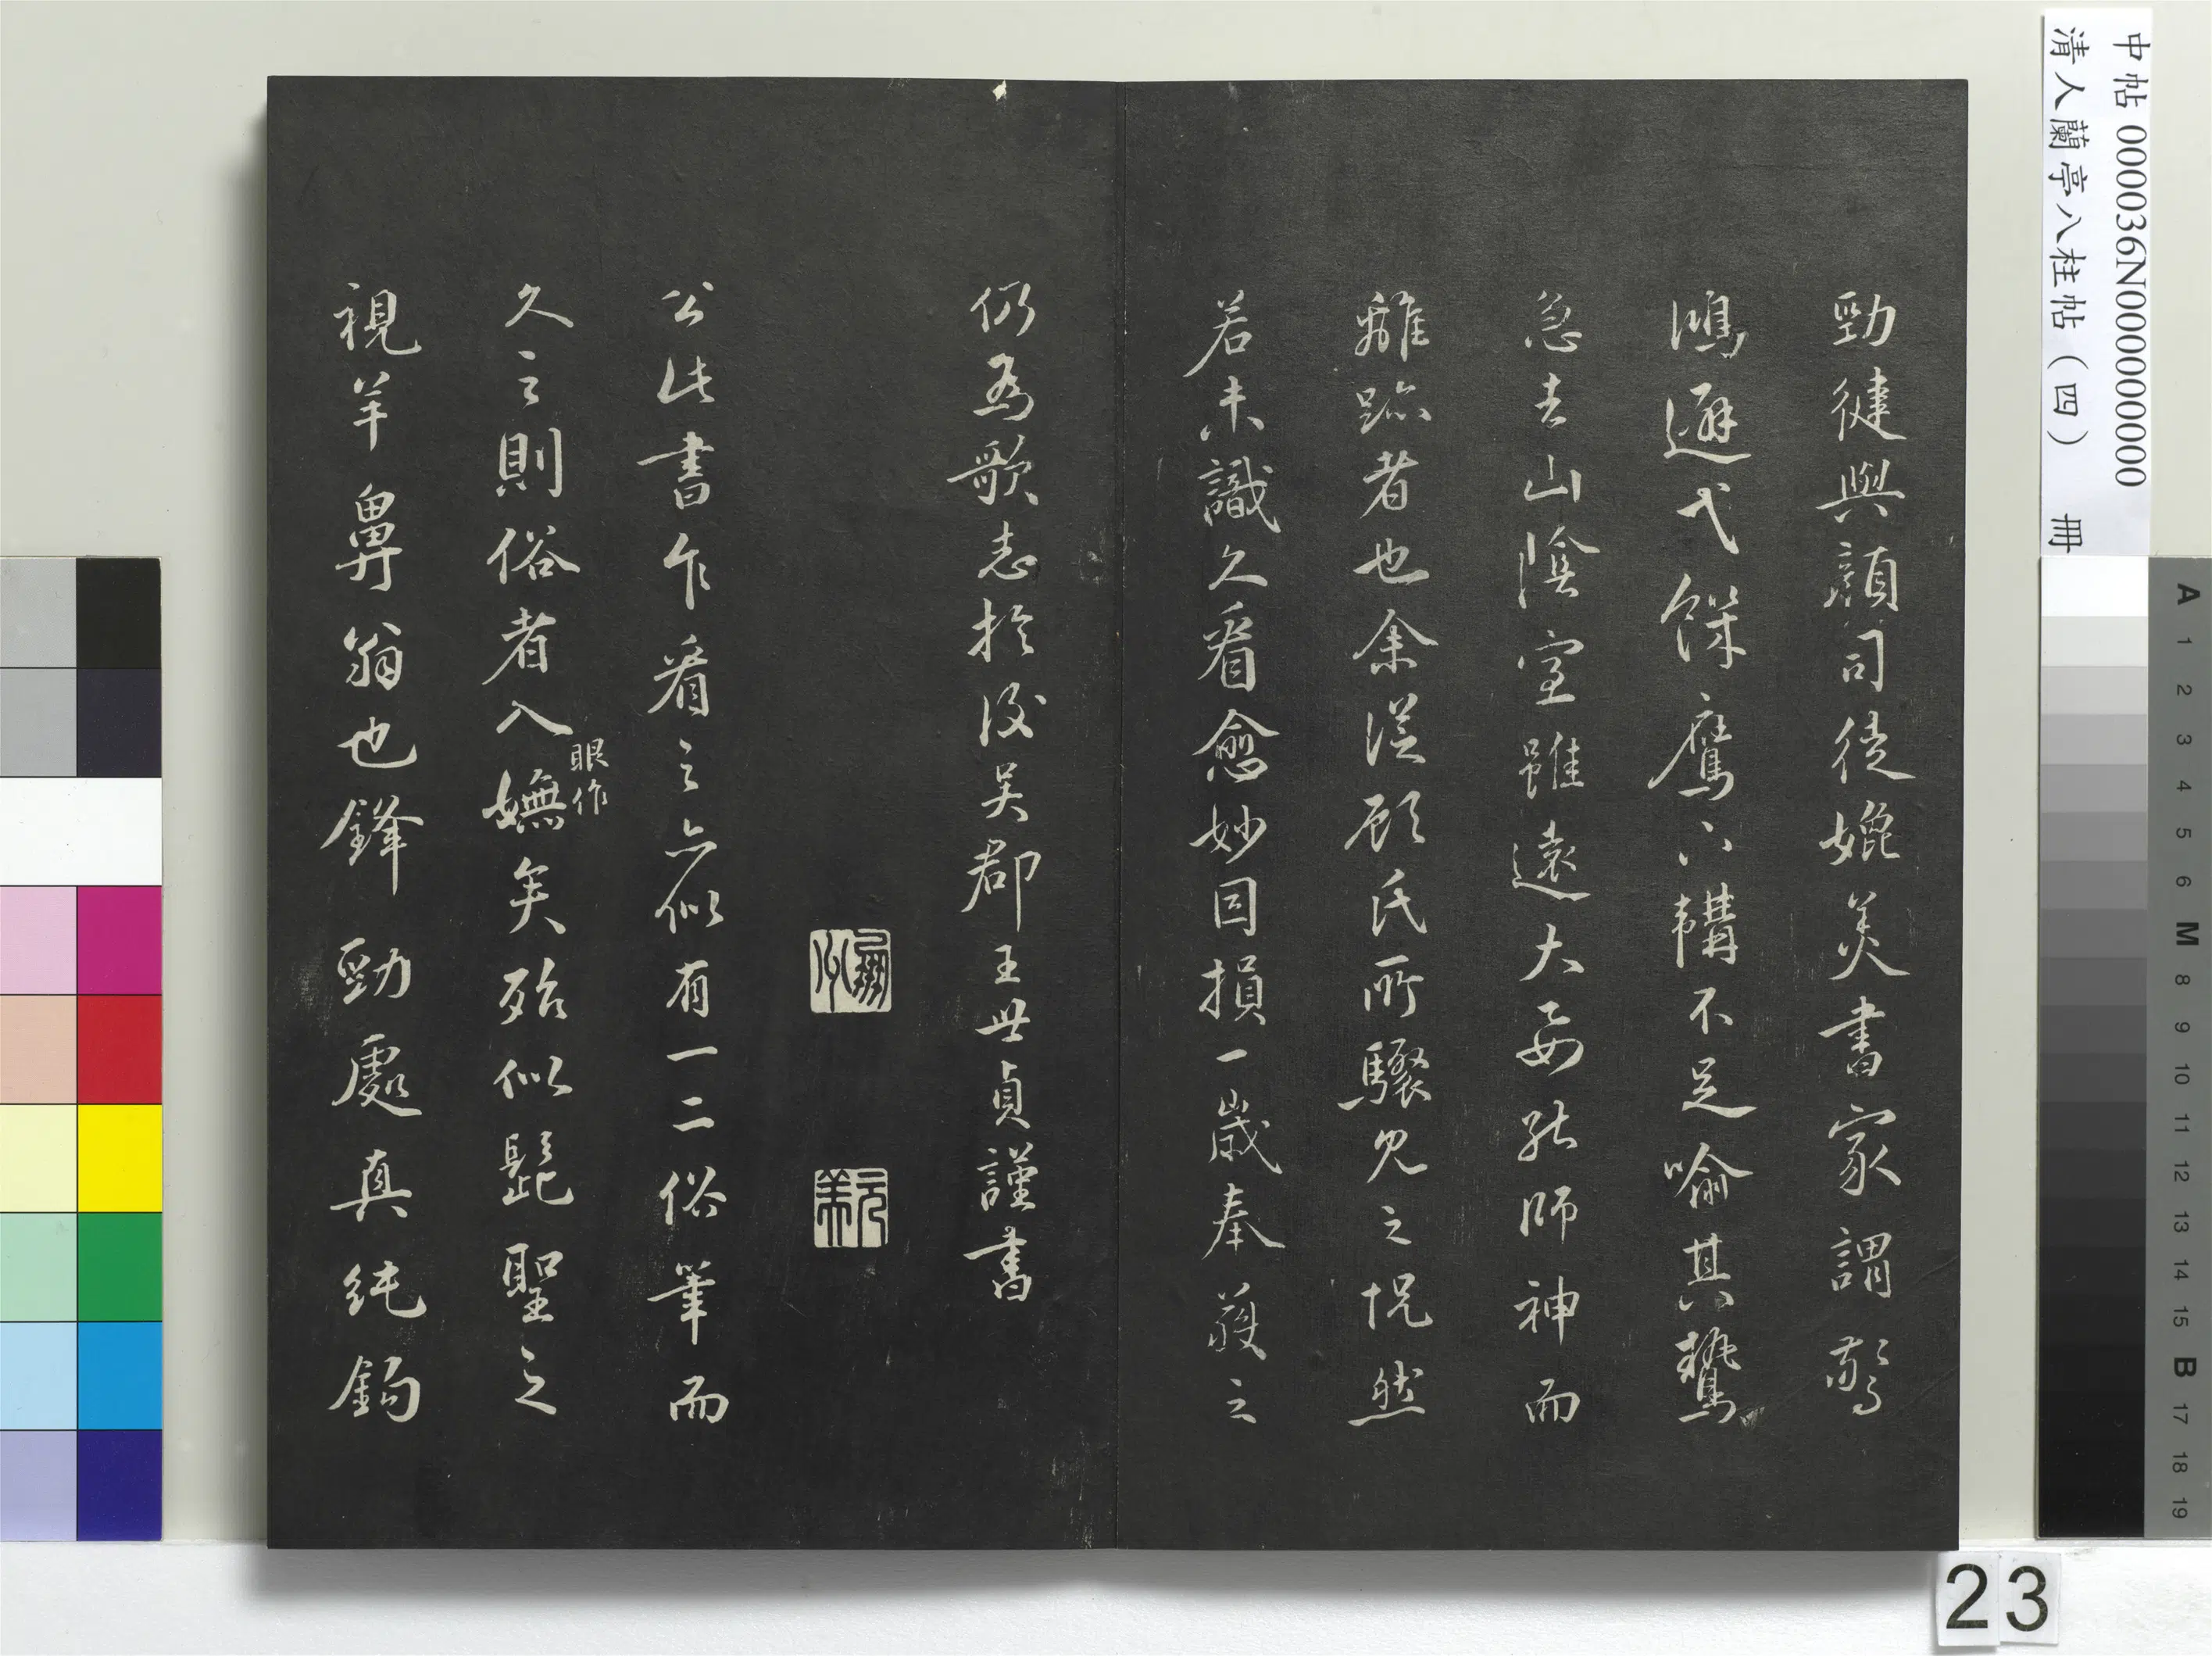 勁健與顏司徒媲美書家謂驚
鴻避弋餱鷹下韝不足喻其鷙
急去山陰室雖遠大要能師神而
離跡者也余從顧氏所驟見之怳然
若未識久看愈妙因損一歲奉獲之
仍為歌志於後吳郡王世貞謹書
公此書乍看之亦似有一二俗筆而
久之則俗者入眼作嫵矣殆似髭聖之
視羊鼻翁也鋒勁處真純鉤
中帖 000036N000000000
清人蘭亭八柱帖（四） 冊
A 1 2 3 4 5 6 M 8 9 10 11 12 13 14 15 B 17 18 19
23